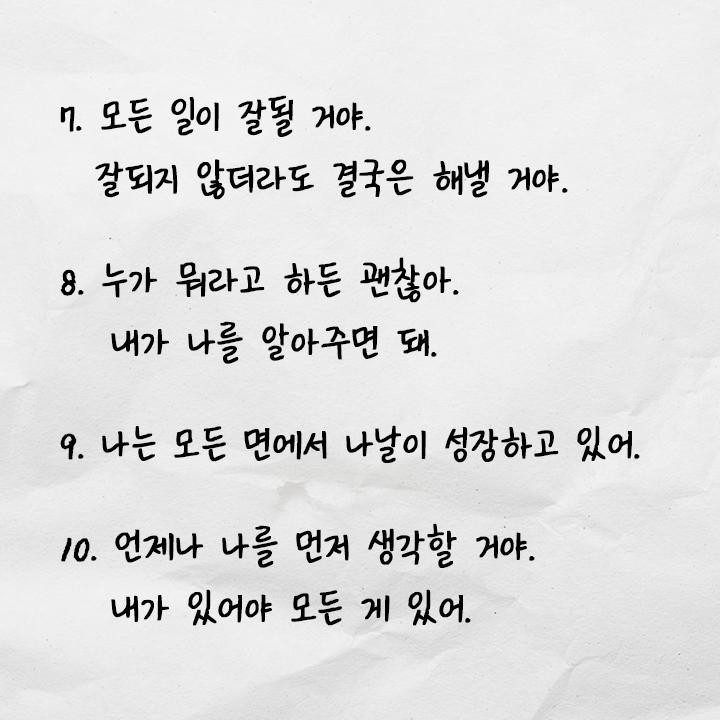 7. 모든 일이 잘될 거야.
잘되지 않더라도 결국은 해낼 거야.
8. 누가 뭐라고 하든 괜찮아.
내가 나를 알아주면 돼.
9. 나는 모든 면에서 나날이 성장하고 있어.
10. 언제나 나를 먼저 생각할 거야.
내가 있어야 모든 게 있어.